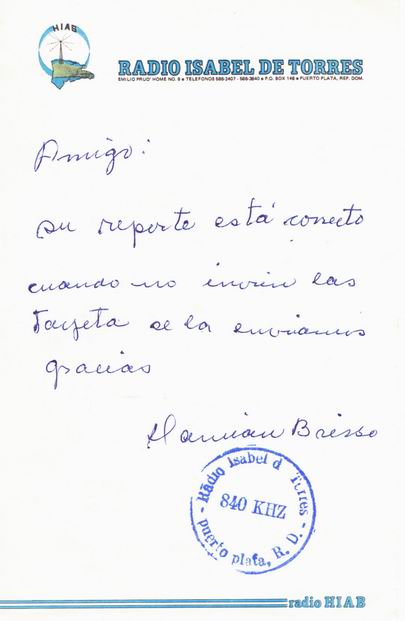 HIAB
RADIO ISABEL DE TORRES
EMILIO PRUD' HOME NO. 9 • TELEFONOS 586-2407 - 586-3840 • P.O. BOX 146 • PUERTO PLATA, REP. DOM.
Amigo:
su reporte está correcto
cuando no envien las
Tarjeta se la enviamos
gracias
Damian Brisso
Radio Isabel d Torres
840 KHZ
- puerto plata, R. D. -
radio HIAB